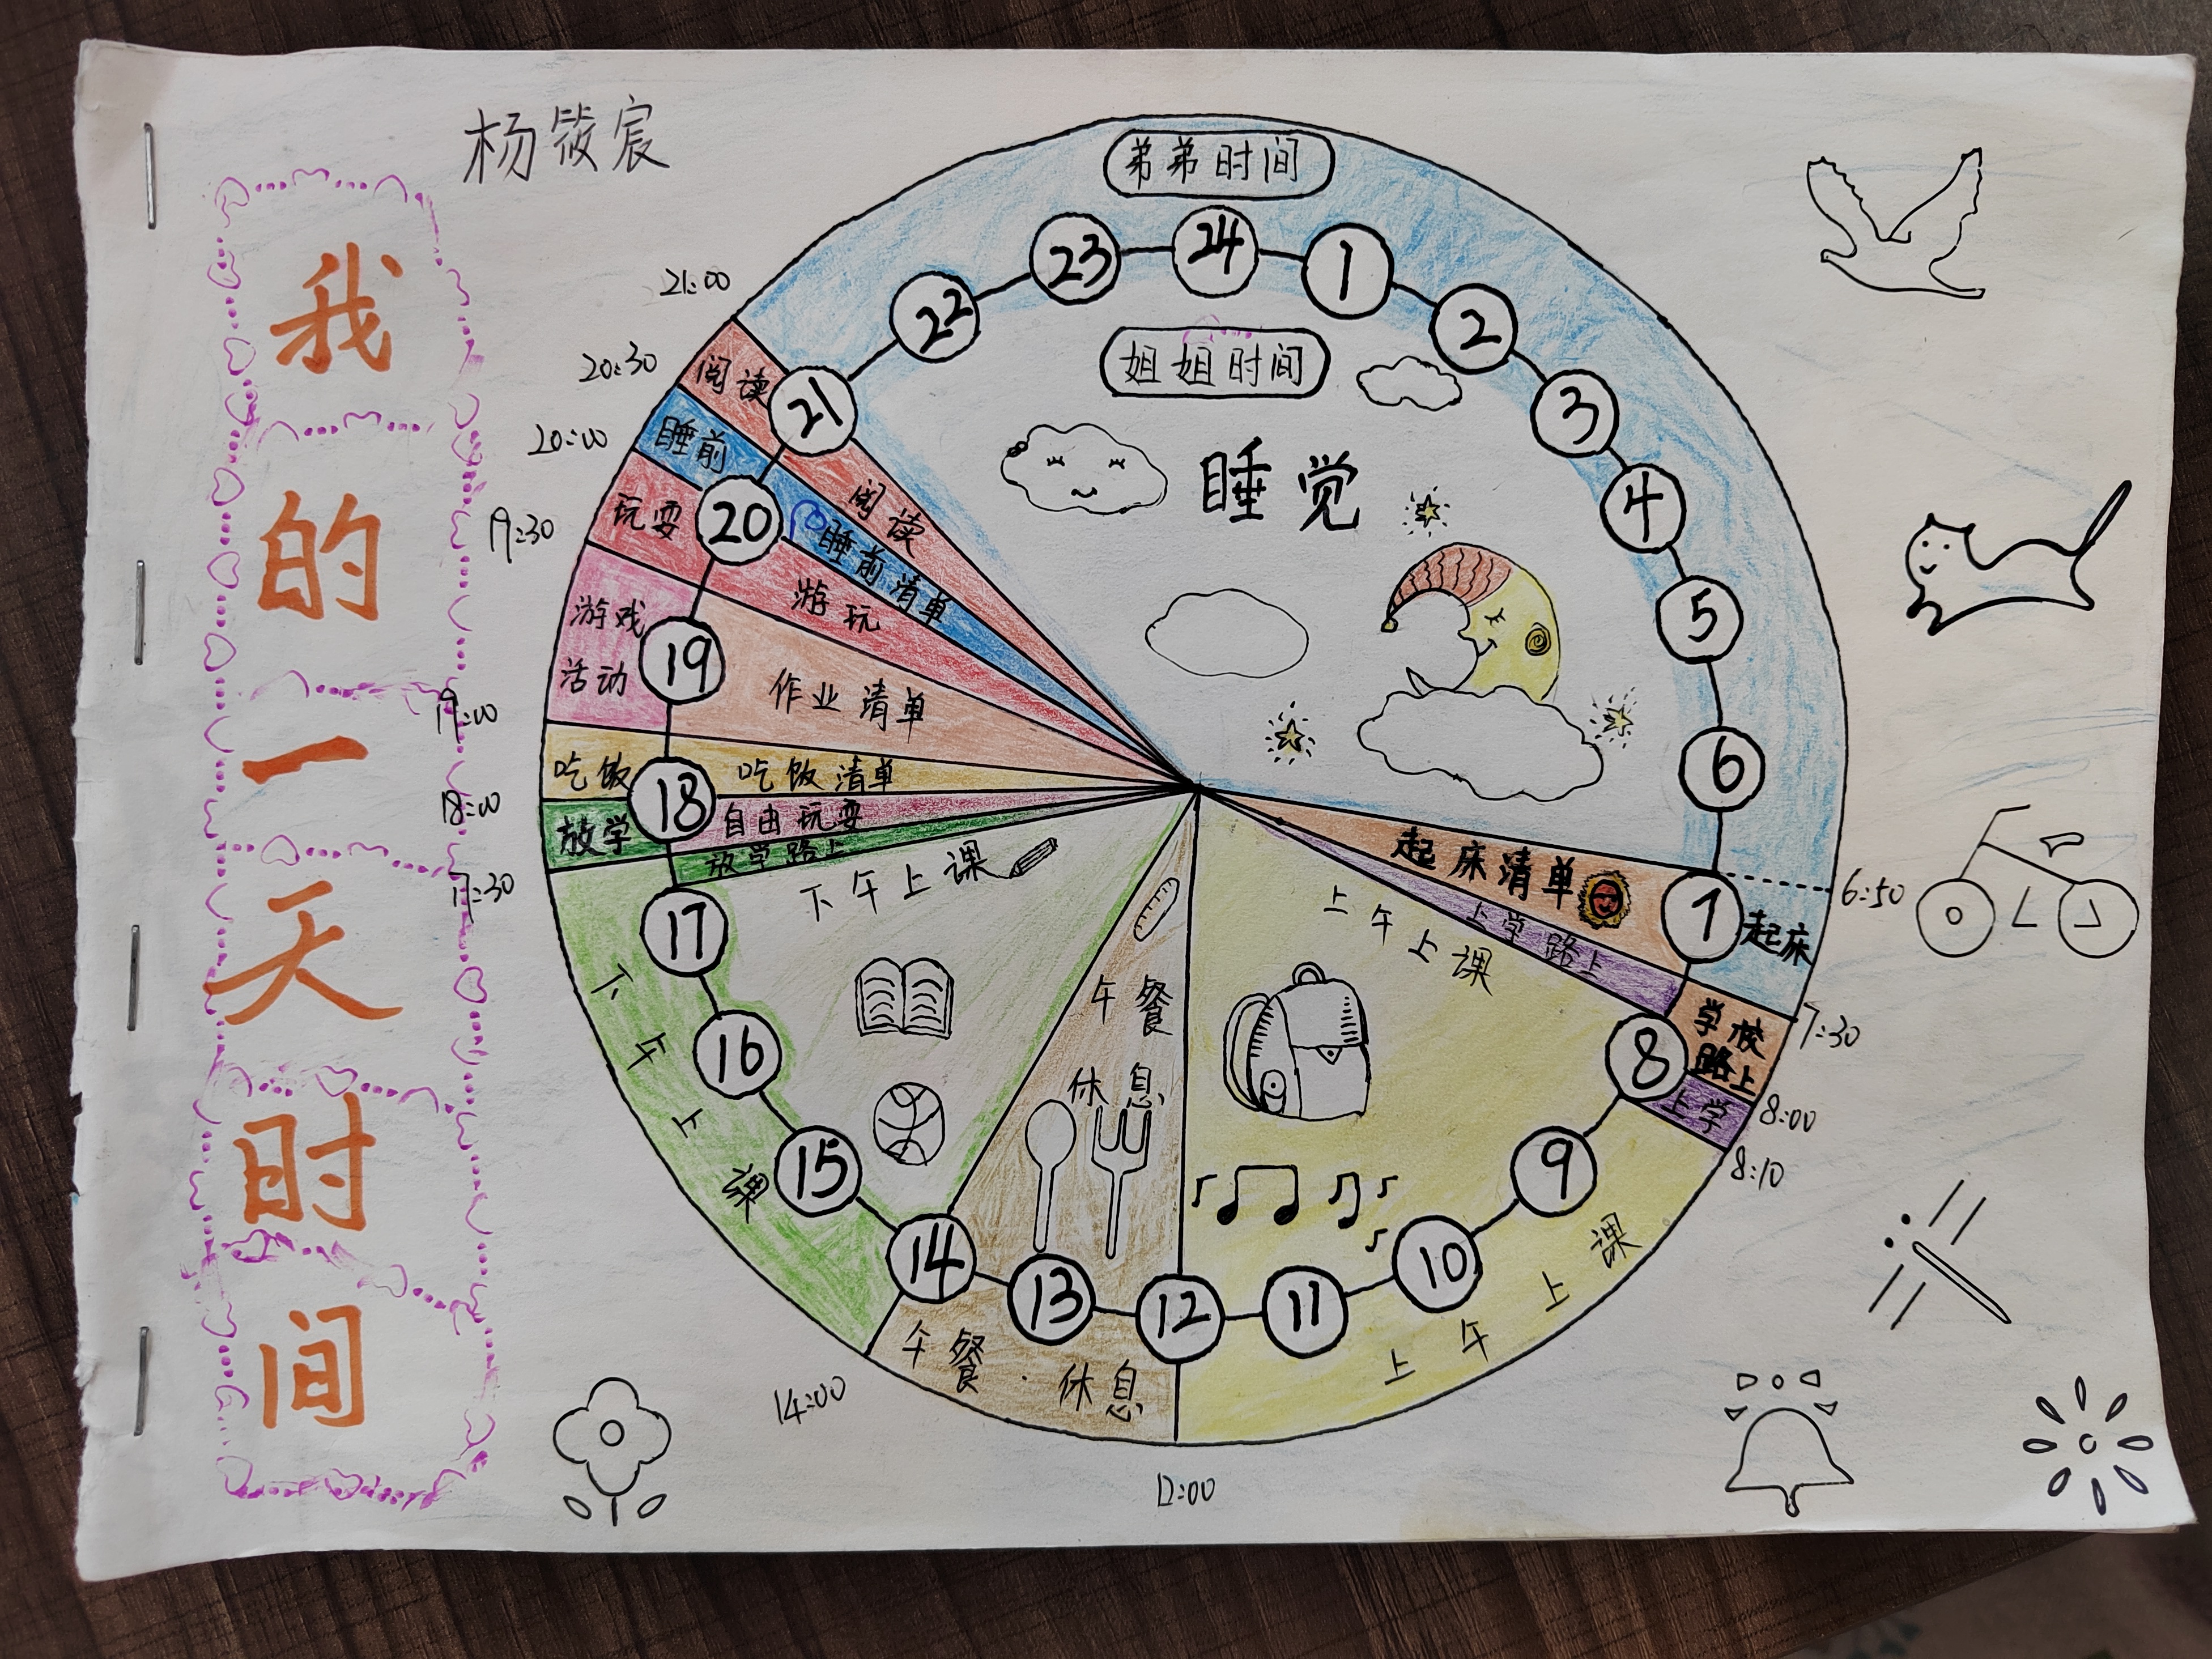 我的一天时间
杨筱宸
弟弟时间
24
1
2
3
4
5
6
7
8
9
10
11
12
13
14
15
16
17
18
19
20
21
22
23
姐姐时间
睡觉
起床清单
上学路上
上午上课
午餐
休息
下午上课
放学路上
自由玩耍
吃饭清单
作业清单
游玩
睡前清单
阅读
起床
学校
路上
上学
上午上课
午餐·休息
下午上课
放学
吃饭
游戏
活动
玩耍
睡前
阅读
6:50
7:30
8:00
8:10
12:00
14:00
17:30
18:00
19:00
19:30
20:00
20:30
21:00